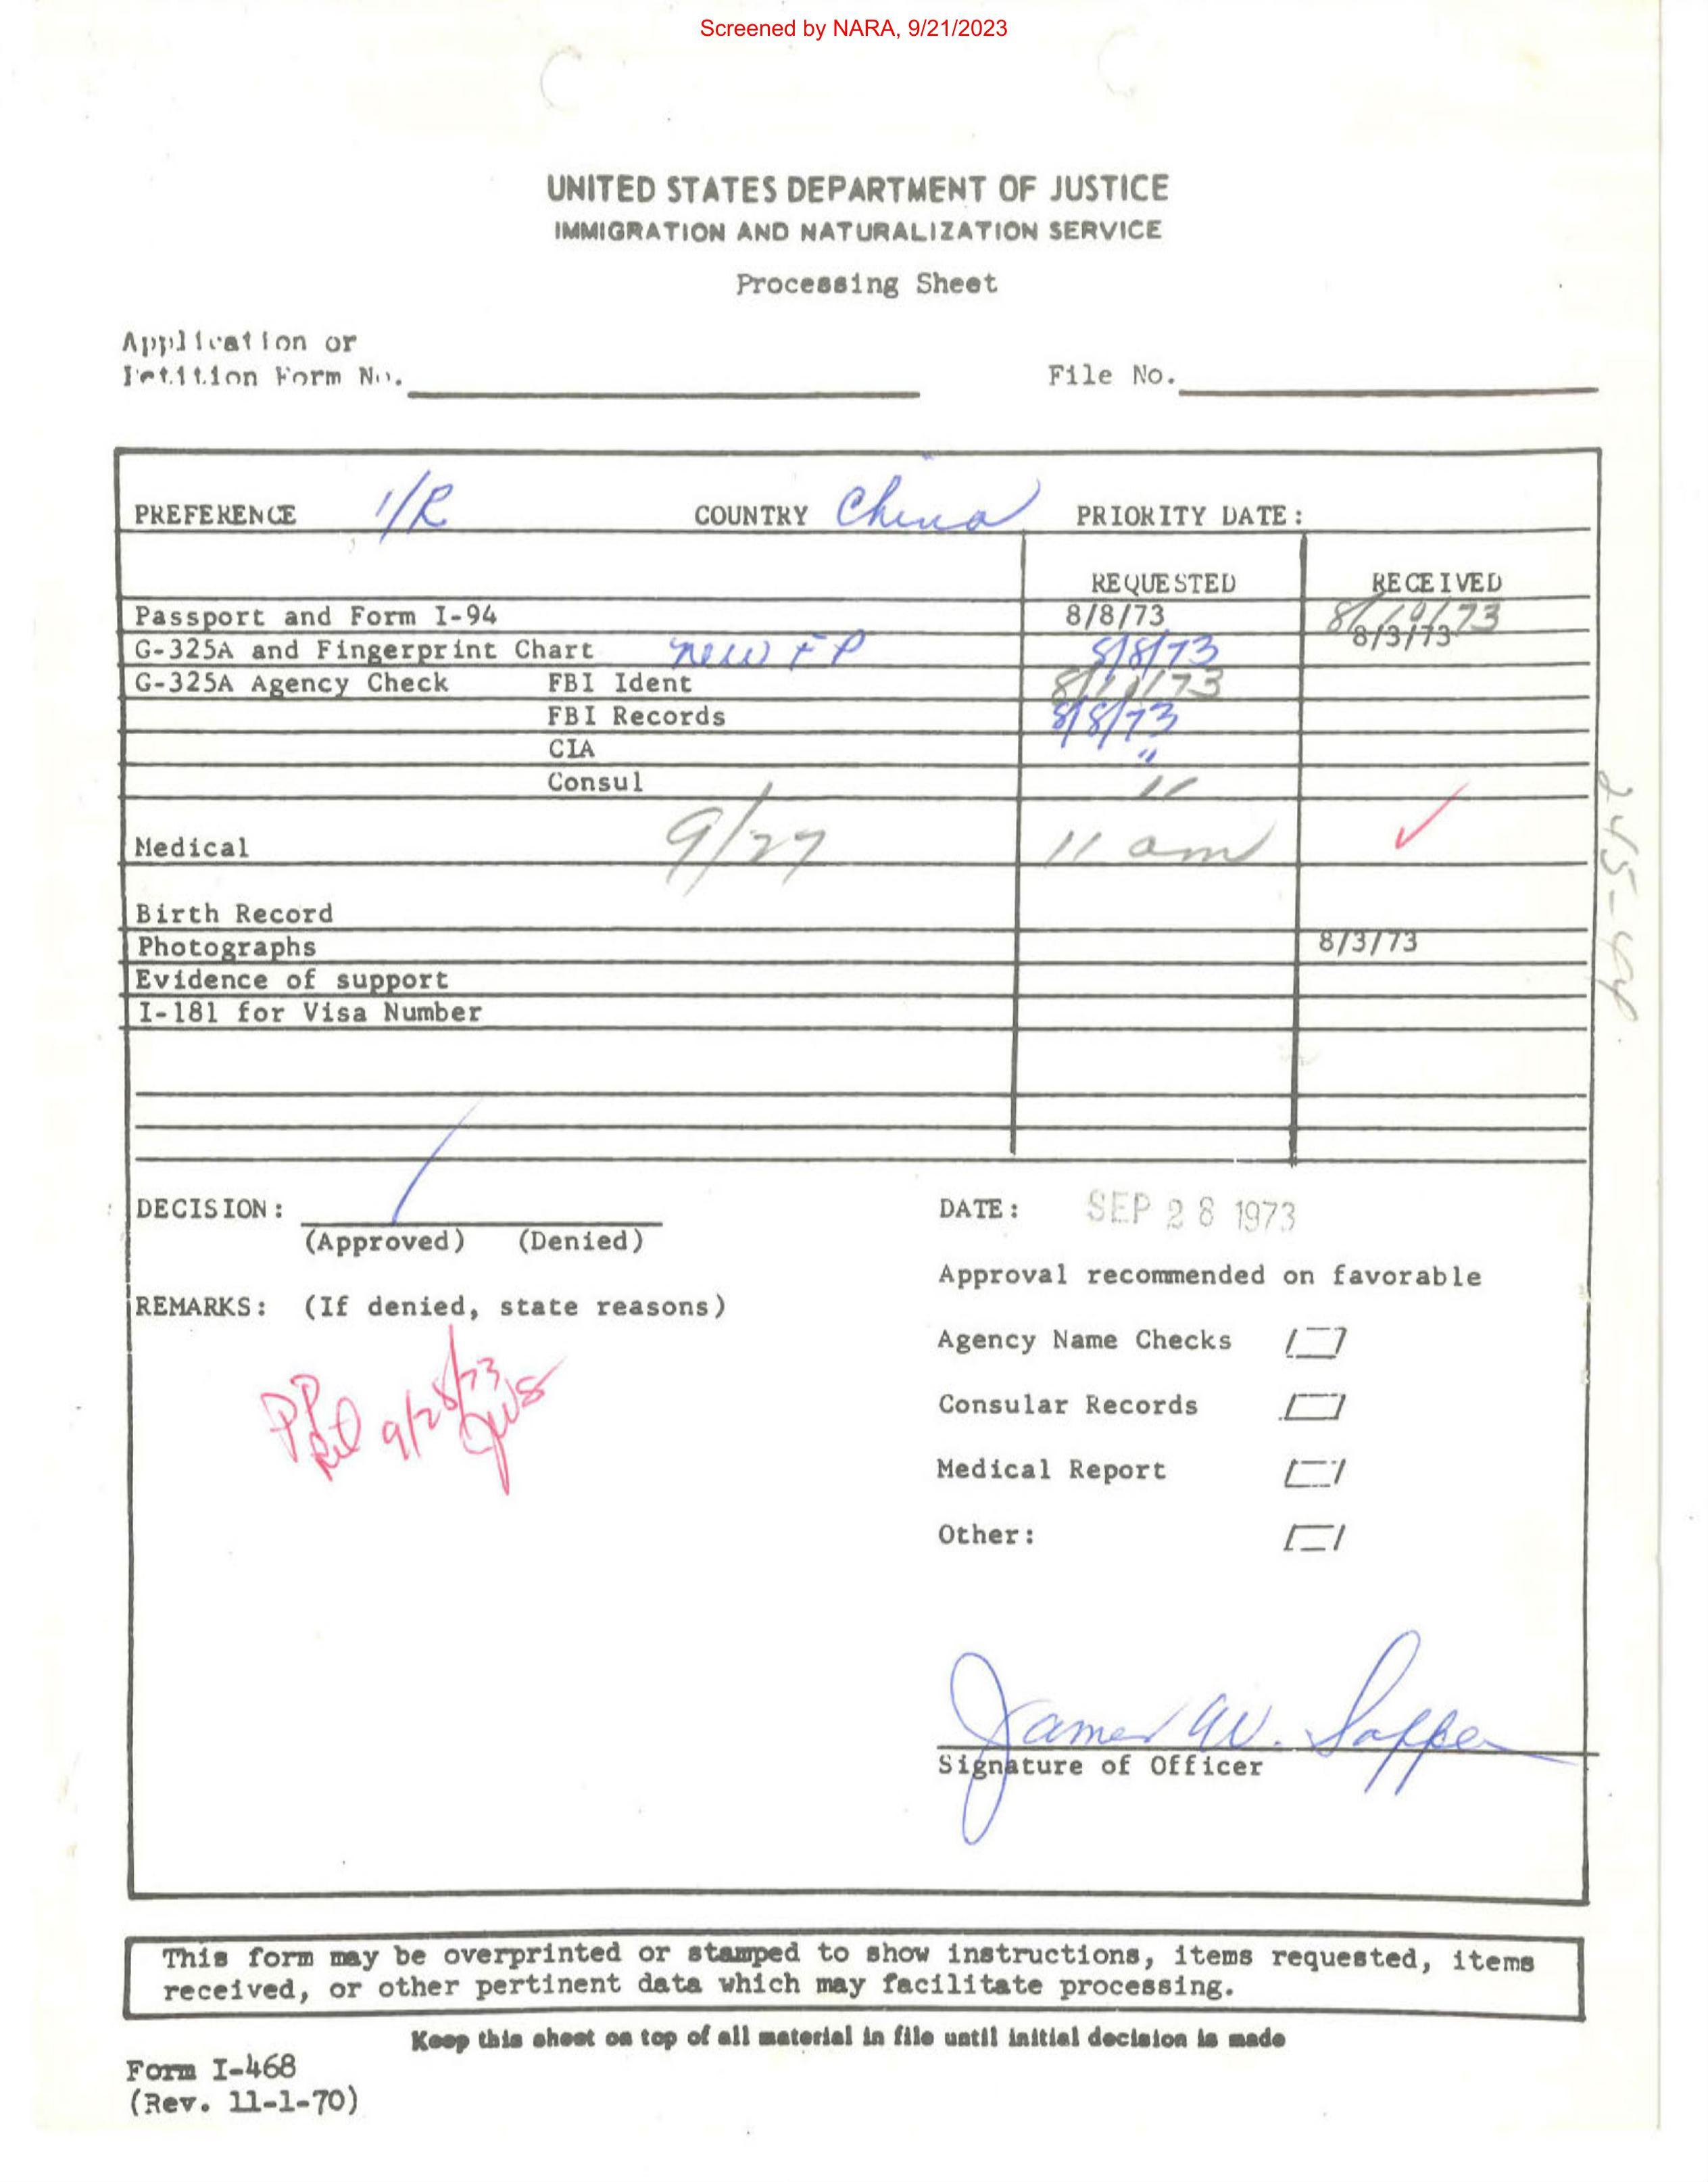 Screened by NARA, 9/21/2023
UNITED STATES DEPARTMENT OF JUSTICE
IMMIGRATION AND NATURALIZATION SERVICE
Processing Sheet
Application or
Petition Form No. File No.
PREFERENCE I/R COUNTRY China PRIORITY DATE:
REQUESTED RECEIVED
Passport and Form I-94 8/8/73 8/10/73
G-325A and Fingerprint Chart new FP 8/8/73 8/3/73
G-325A Agency Check FBI Ident 8/10/73
FBI Records 8/8/73
CIA "
Consul "
Medical 9/27 11 am ✓
Birth Record
Photographs 8/3/73
Evidence of support
I-181 for Visa Number
DECISION: / DATE: SEP 28 1973
(Approved) (Denied)
Approval recommended on favorable
REMARKS: (If denied, state reasons)
Agency Name Checks
9/28/73
Consular Records
Medical Report
Other:
James W.
Signature of Officer
This form may be overprinted or stamped to show instructions, items requested, items
received, or other pertinent data which may facilitate processing.
Keep this sheet on top of all material in file until initial decision is made
Form I-468
(Rev. 11-1-70)